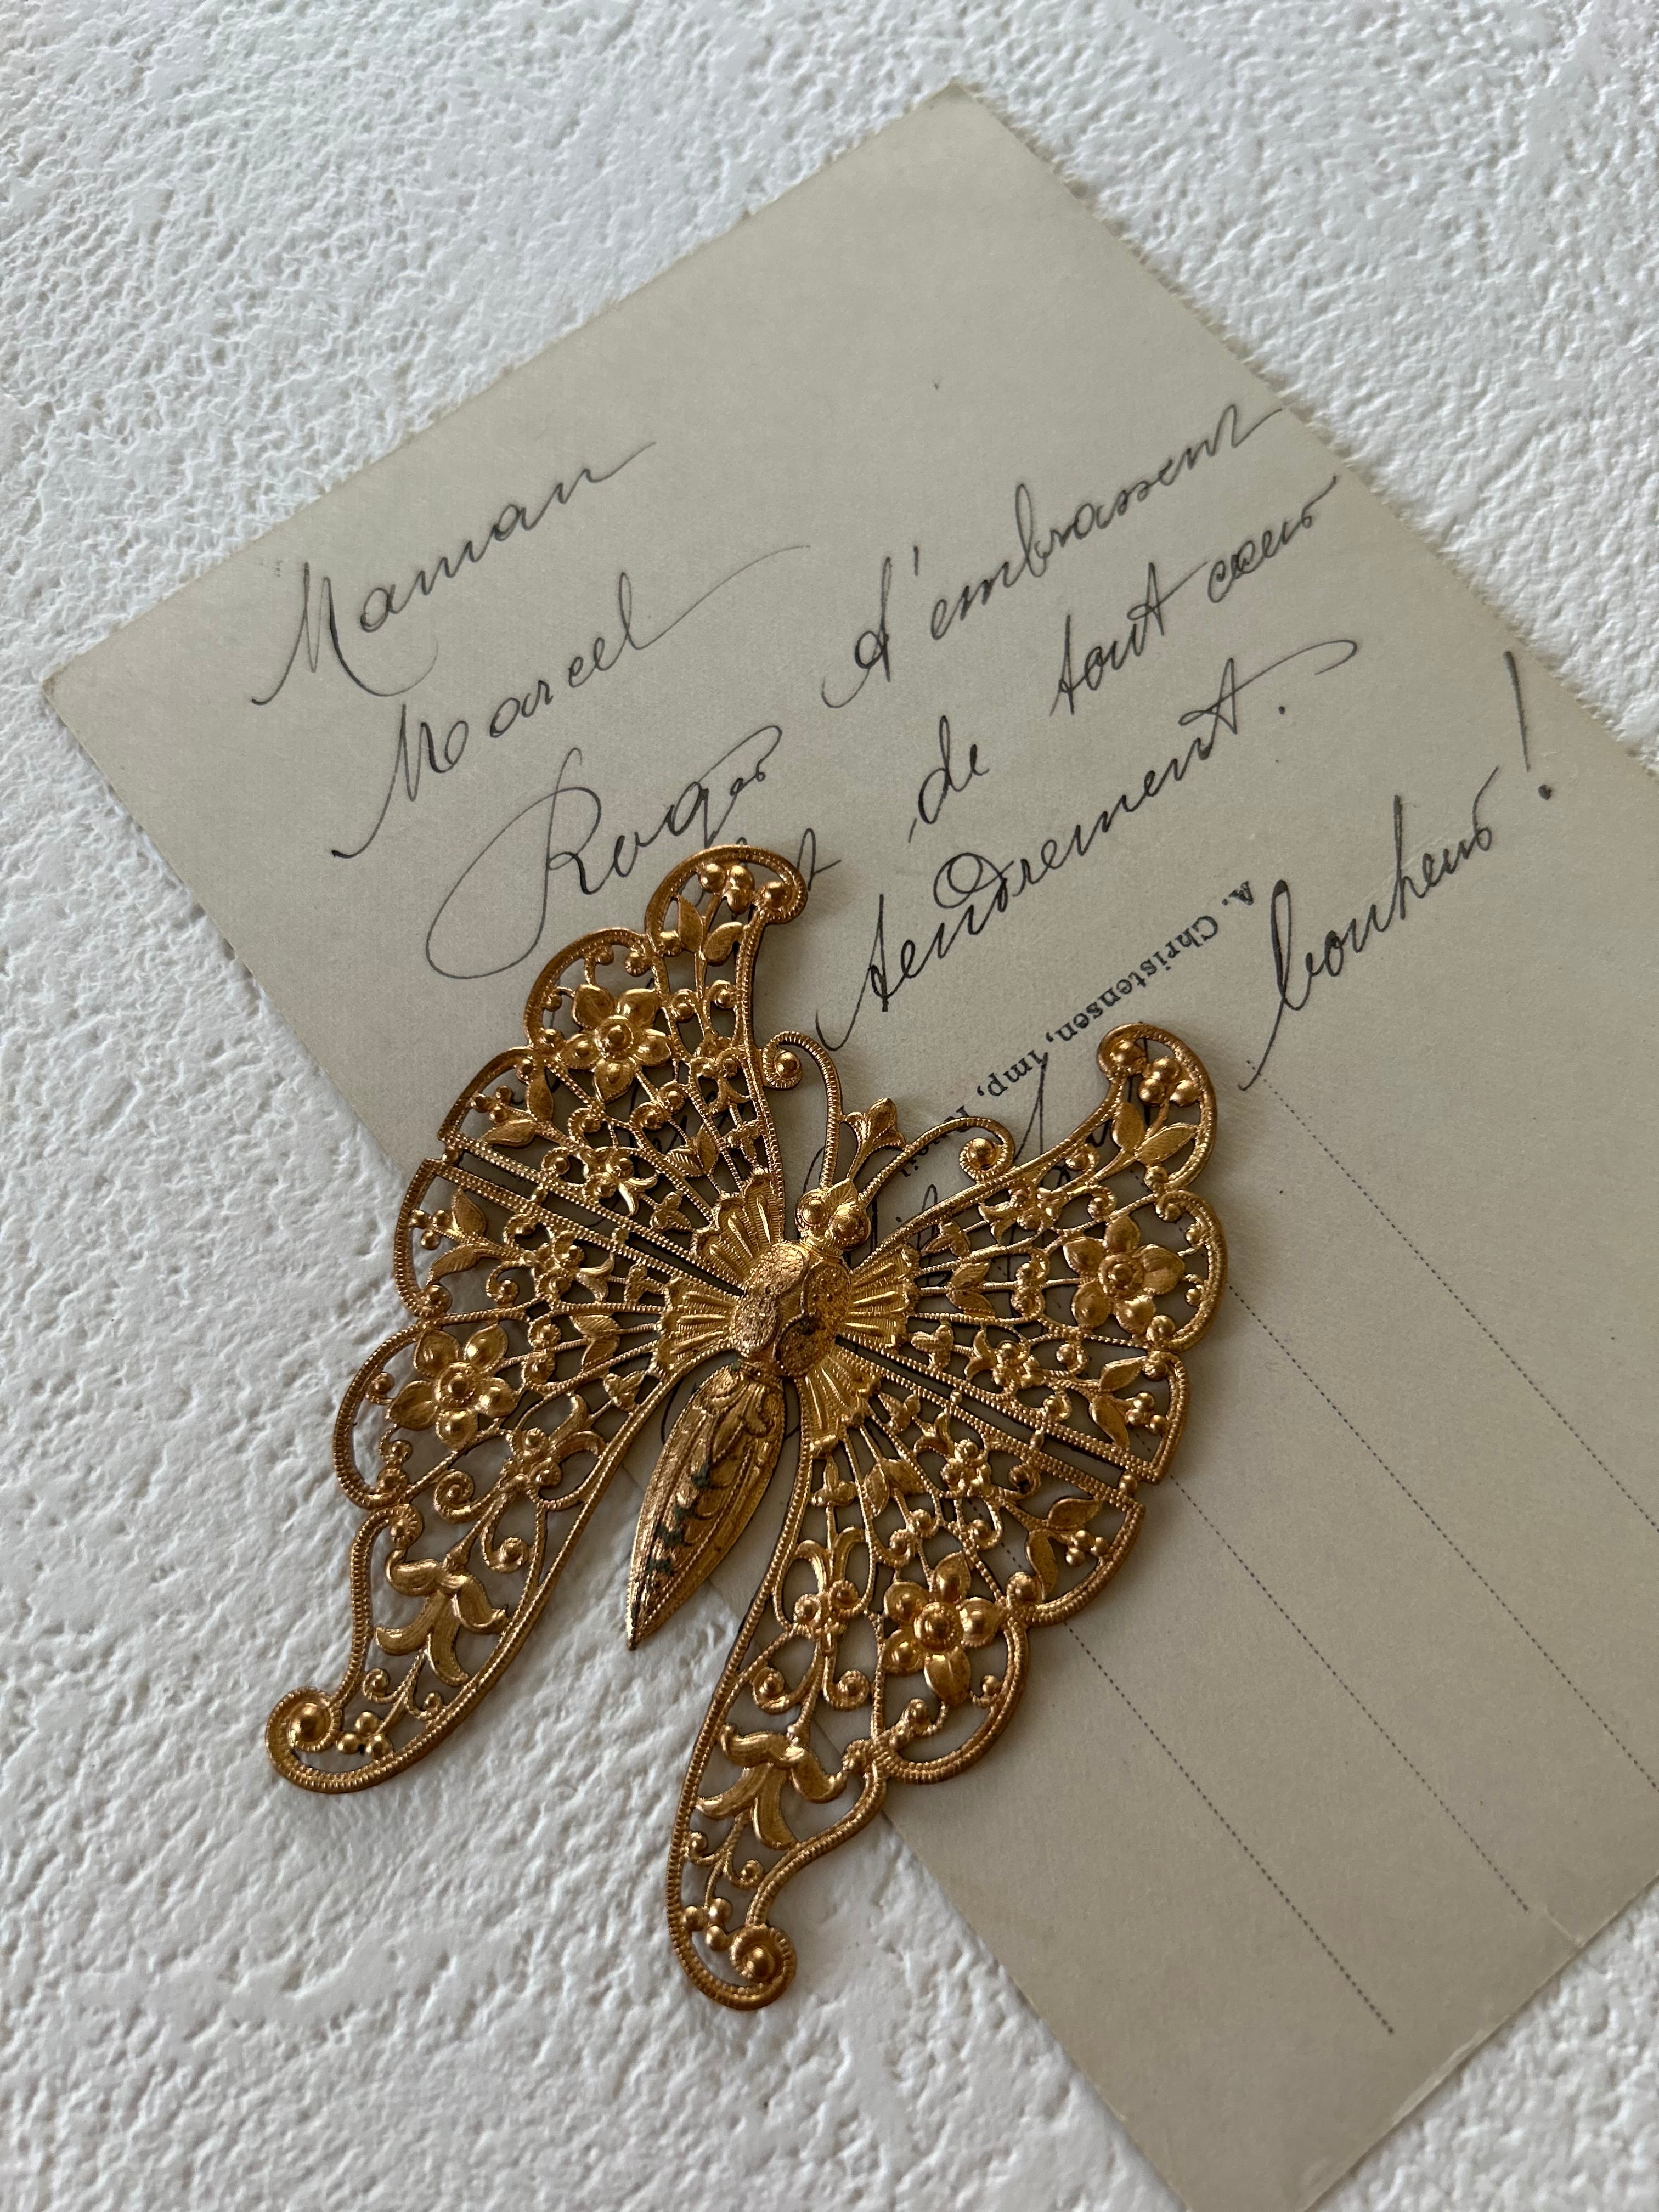 Maman
Marcel
Roger t'embrassent
et de tout cœur
tendrement.
bonheur!
A. Christensen, imp,